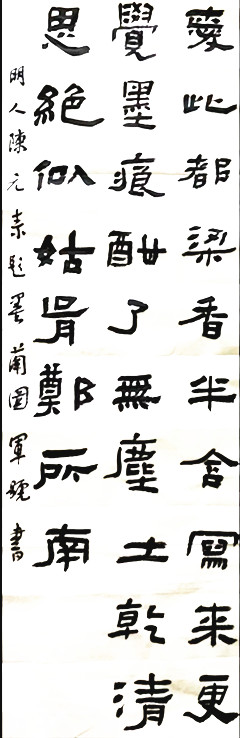 愛此都梁香半含寫来更
覺墨痕酣了無塵土乾清
思絶似姑胥鄭所南
明人陳元素題墨蘭圖 軍號書